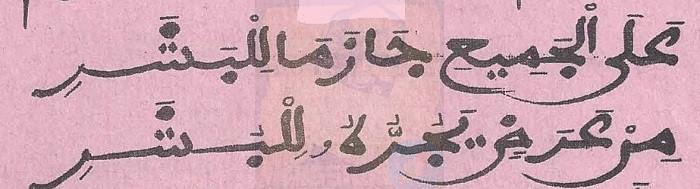 عَلَى الْجَمِيعِ حَازَ مَا لِلْبَشَرِ
مِنْ عَرَضٍ يَجُرُّهُ لِلْبَشَرِ